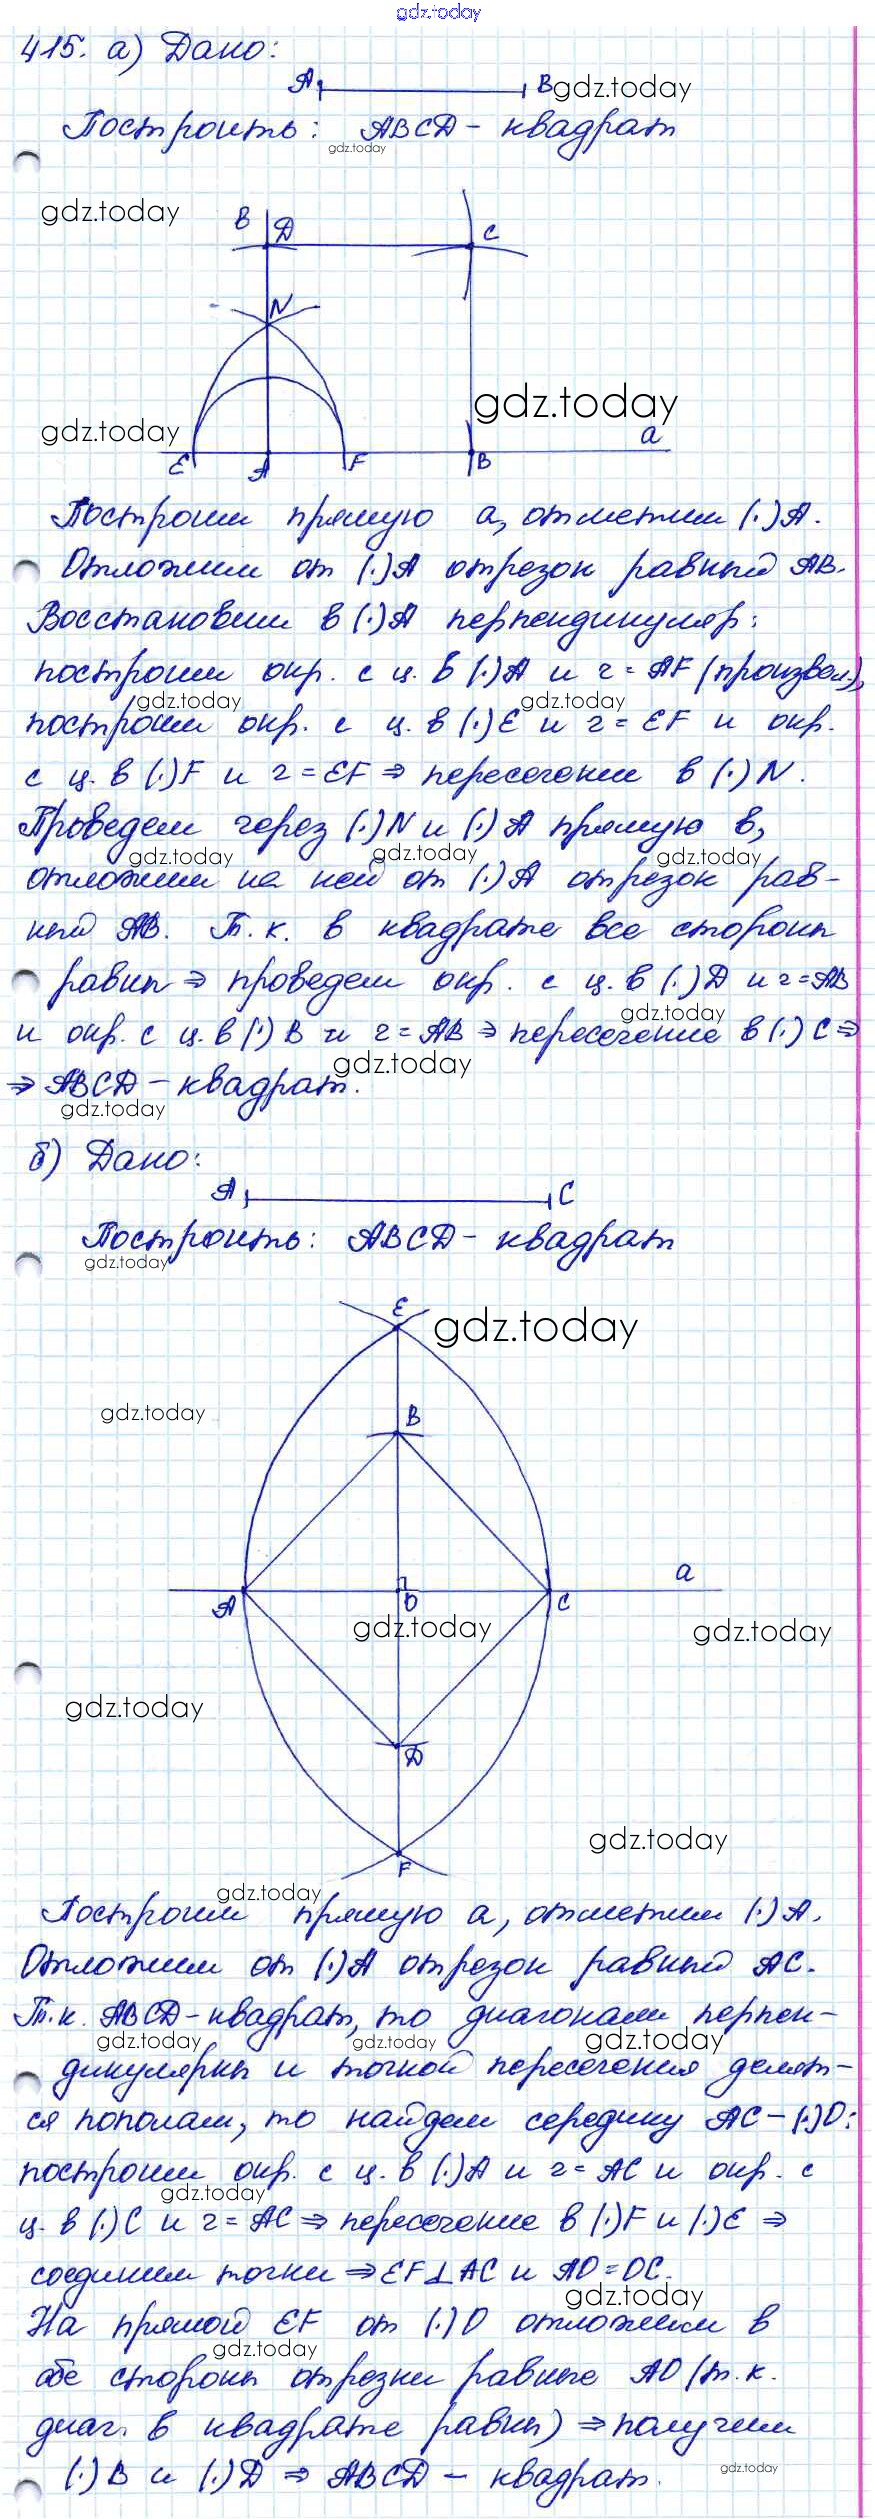 gdz.today
415. а) Дано:
A B gdz.today
Построить: ABCD - квадрат
gdz.today
gdz.today
В D C
N
gdz.today
gdz.today
a
E A F B
Построим прямую a, отметим (·)A.
Отложим от (·)A отрезок равный AB.
Восстановим в (·)A перпендикуляр:
построим окр. с ц. в (·)A и r = AF (произвол.),
gdz.today gdz.today
построим окр. с ц. в (·)E и r = EF и окр.
с ц. в (·)F и r = EF ⇒ пересечение в (·)N.
Проведем через (·)N и (·)A прямую в,
gdz.today gdz.today gdz.today
отложим на ней от (·)A отрезок рав-
ный AB. Т.к. в квадрате все стороны
равны ⇒ проведем окр. с ц. в (·)D и r = AB
gdz.today
и окр. с ц. в (·)B и r = AB ⇒ пересечение в (·)C ⇒
gdz.today
⇒ ABCD - квадрат.
gdz.today
б) Дано:
A C
Построить: ABCD - квадрат
gdz.today
E
gdz.today
gdz.today
B
a
A O C
gdz.today gdz.today
gdz.today
D
gdz.today
F
gdz.today
Построим прямую a, отметим (·)A.
Отложим от (·)A отрезок равный AC.
Т.к. ABCD - квадрат, то диагонали перпен-
gdz.today gdz.today gdz.today
дикулярны и точкой пересечения делят-
ся пополам, то найдем середину AC - (·)O:
построим окр. с ц. в (·)A и r = AC и окр. с
gdz.today
ц. в (·)C и r = AC ⇒ пересечение в (·)F и (·)E ⇒
соединим точки ⇒ EF ⊥ AC и AO = OC.
gdz.today
На прямой EF от (·)O отложим в
gdz.today
обе стороны отрезки равные AO (т.к.
диаг. в квадрате равны) ⇒ получим
(·)B и (·)D ⇒ ABCD - квадрат.
gdz.today